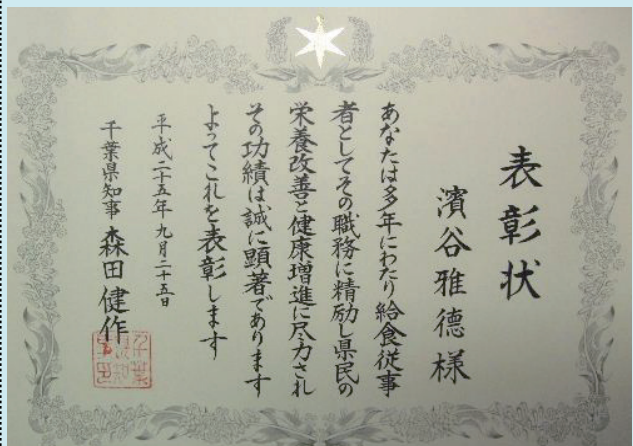 表彰状
濱谷雅德様
あなたは多年にわたり給食従事
者としてその職務に精励し県民の
栄養改善と健康増進に尽力され
その功績は誠に顕著であります
よってこれを表彰します
平成二十五年九月二十五日
千葉県知事 森田健作